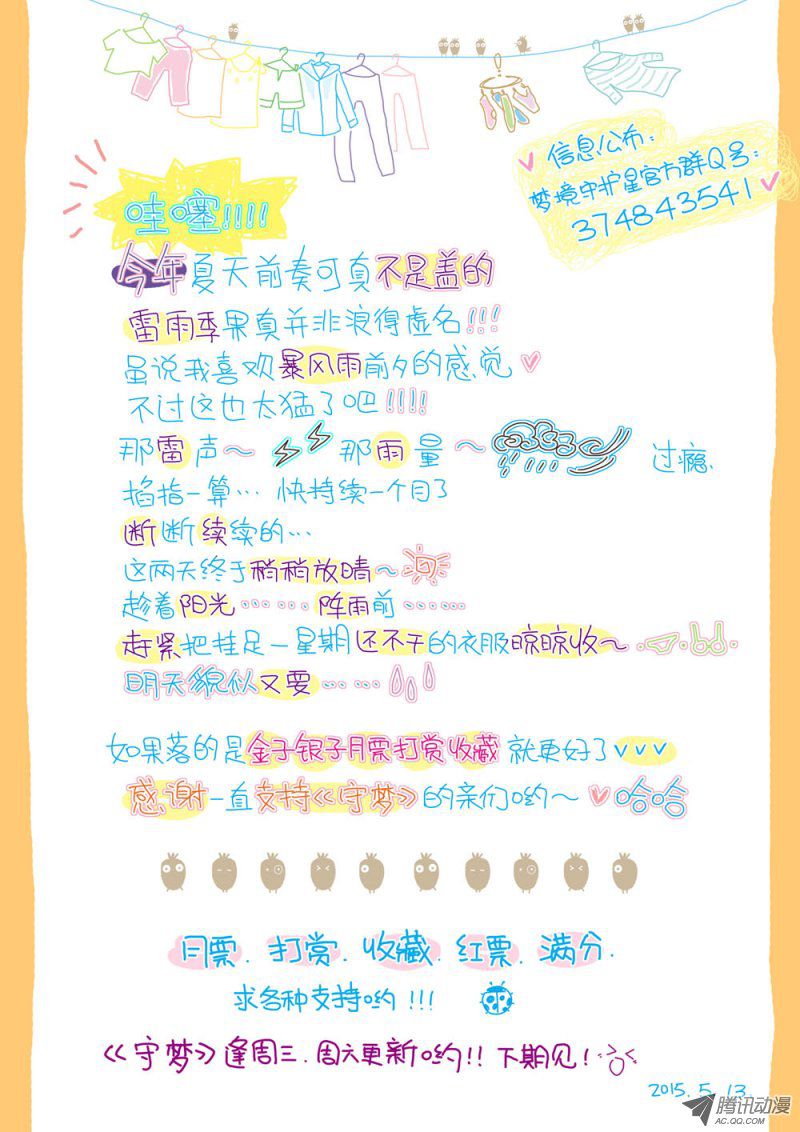 信息公布:
梦境守护星官方群Q号:
374843541
哇噻!!!!
今年夏天前奏可真不是盖的
雷雨季果真并非浪得虚名!!!
虽说我喜欢暴风雨前夕的感觉
不过这也太猛了吧!!!!
那雷声～ 那雨量～ 过瘾.
掐指一算… 快持续一个月了
断断续续的…
这两天终于稍稍放晴～
趁着阳光…… 阵雨前……
赶紧把挂足一星期还不干的衣服晾晾收～
明天貌似又要……
如果落的是金子银子月票打赏收藏就更好了
感谢一直支持《守梦》的亲们哟～ 哈哈
月票. 打赏. 收藏. 红票. 满分.
求各种支持哟!!!
《守梦》逢周三.周六更新哟!! 下期见!
2015.5.13.
腾讯动漫
AC.QQ.COM